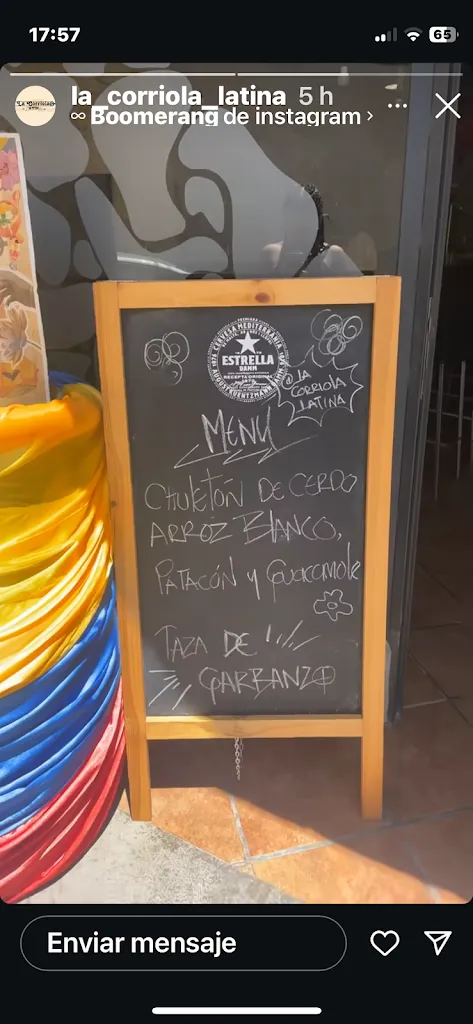 17:57
65
la_corriola_latina 5 h
∞ Boomerang de instagram >
CERVESA MEDITERRÀNIA
1876
ESTRELLA
DAMM
RECEPTA ORIGINAL
1876
AUGUST KUENTZMANN DAMM
@LA
CORRIOLA
LATINA
MENÚ
CHULETÓN DE CERDO
ARROZ BLANCO,
PATACÓN Y GUACAMOLE
TAZA DE
GARBANZO
Enviar mensaje